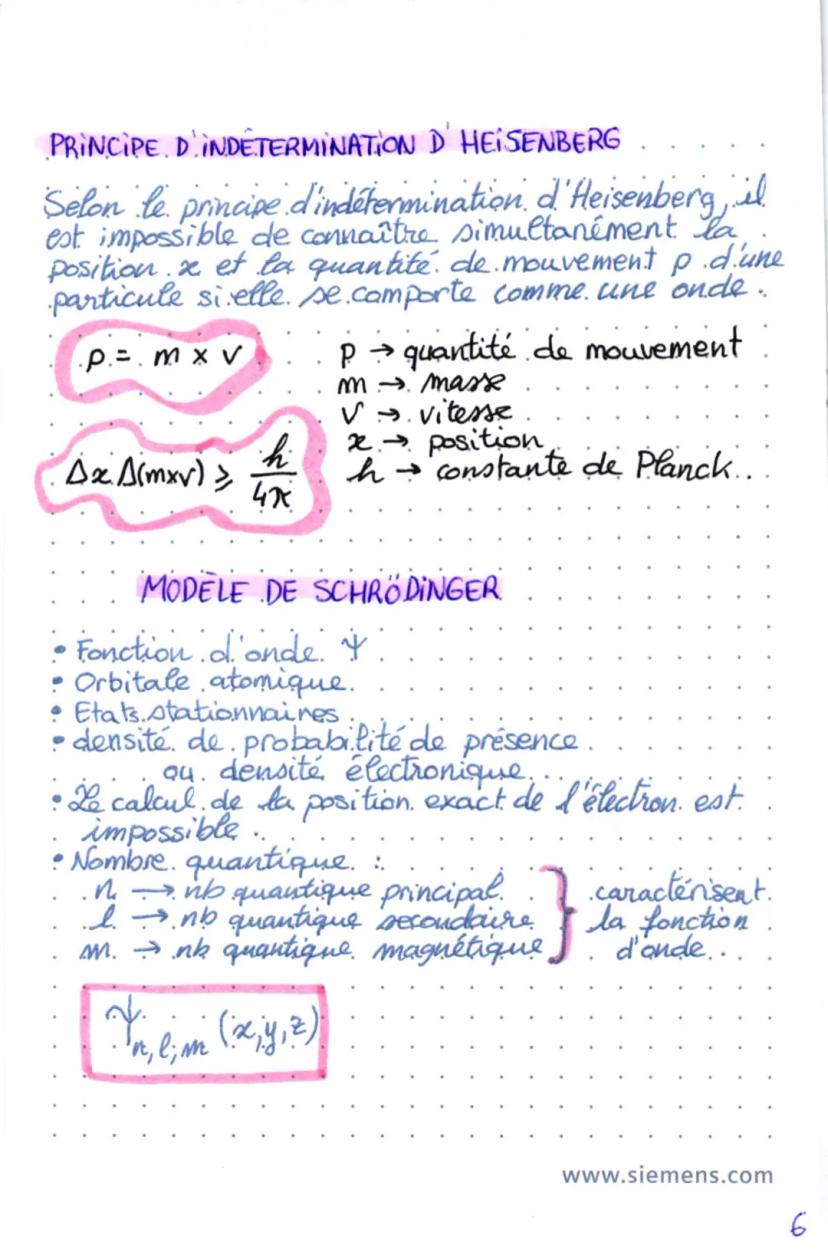 PRINCIPE D'INDÉTERMINATION D'HEISENBERG
Selon le principe d'indétermination d'Heisenberg, il
est impossible de connaître simultanément la
position x et la quantité de mouvement p d'une
particule si elle se comporte comme une onde.
p = m x v
p → quantité de mouvement
m → masse
v → vitesse
x → position
h → constante de Planck..
Δx Δ(mxv) ⩾ h/4π
MODÈLE DE SCHRÖDINGER
• Fonction d'onde Ψ
• Orbitale atomique.
• Etats stationnaires
• densité de probabilité de présence
ou densité électronique...
• Le calcul de la position exact de l'électron est
impossible.
• Nombre quantique :
n → nb quantique principal
l → nb quantique secondaire
m → nb quantique magnétique
caractérisent
la fonction
d'onde..
Ψn,l,m (x,y,z)
www.siemens.com
6